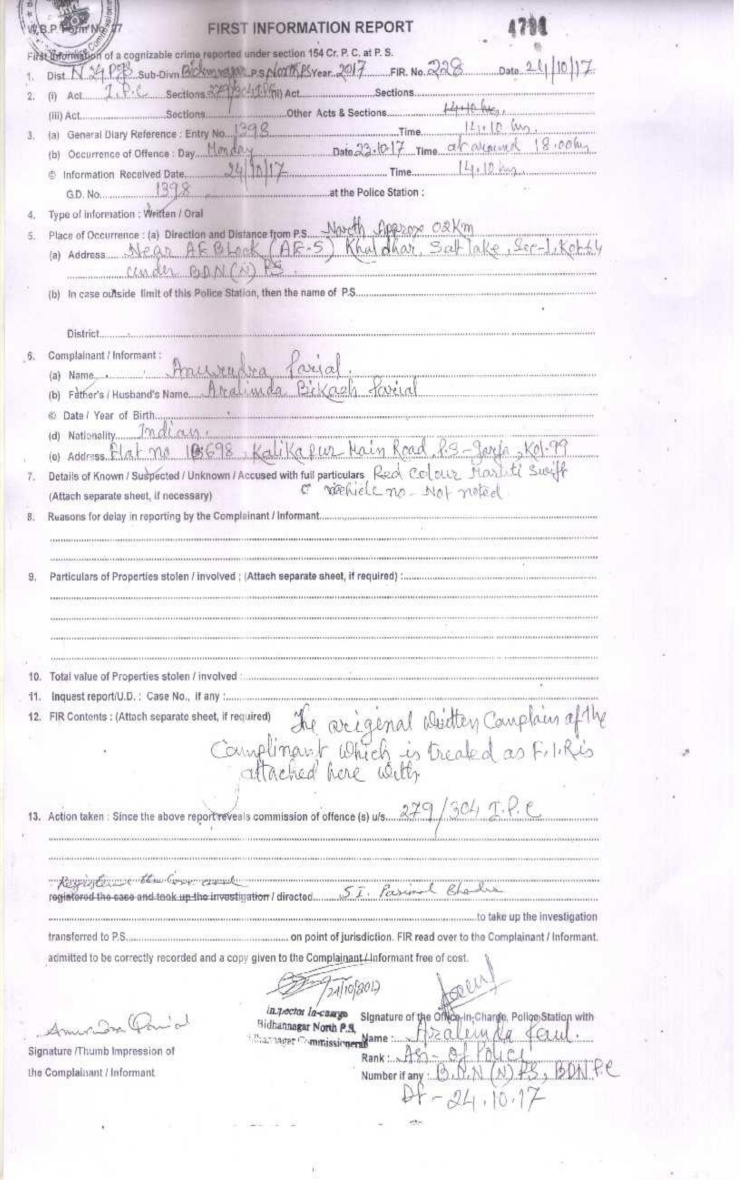 W.B.P. Form No. 27
FIRST INFORMATION REPORT
4791
First Information of a cognizable crime reported under section 154 Cr. P. C. at P. S.
1. Dist. N 24 PGS Sub-Divn Bidhannagar P.S. North PS Year 2017 FIR. No. 228 Date 24/10/17
2. (i) Act I.P.C Sections 279/304 I.P.C (ii) Act Sections
(iii) Act Sections Other Acts & Sections 14.10 hrs.
3. (a) General Diary Reference : Entry No. 1398 Time 14.10 hrs.
(b) Occurrence of Offence : Day Monday Date 23.10.17 Time at around 18.00 hrs
© Information Received Date 24/10/17 Time 14.10 hrs.
G.D. No. 1398 at the Police Station :
4. Type of information : Written / Oral
5. Place of Occurrence : (a) Direction and Distance from P.S. North Approx 02Km
(a) Address Near AE Block (AE-5) Khaldhar, Salt Lake, Sec-1, Kol-64
under BDN(N) PS.
(b) In case outside limit of this Police Station, then the name of P.S.
District
6. Complainant / Informant :
(a) Name Anuradra Parial
(b) Father's / Husband's Name Aralinda Bikash Parial
© Date / Year of Birth
(d) Nationality Indian.
(e) Address Flat no 698, Kalikapur Main Road, P.S - Garfa, Kol-99
7. Details of Known / Suspected / Unknown / Accused with full particulars Red Colour Maruti Swift
(Attach separate sheet, if necessary) Vehicle no - Not noted
8. Reasons for delay in reporting by the Complainant / Informant
9. Particulars of Properties stolen / involved ; (Attach separate sheet, if required) :
10. Total value of Properties stolen / involved :
11. Inquest report/U.D. : Case No., if any :
12. FIR Contents : (Attach separate sheet, if required) The original Written Complain of the
Complinant which is treated as F.I.R is
attached here with
13. Action taken : Since the above report reveals commission of offence (s) u/s. 279/304 I.P.C
registered the case and took up the investigation / directed S.I. Parimal Bhadra
to take up the investigation
transferred to P.S. on point of jurisdiction. FIR read over to the Complainant / Informant.
admitted to be correctly recorded and a copy given to the Complainant / Informant free of cost.
24/10/2017
Inspector In-charge
Bidhannagar North P.S.
Bidhannagar Commissionerate
Signature of the Officer-in-Charge, Police Station with
Name : Aralinda Paul.
Rank : ASI - of Police
Number if any : B.D.N (N) PS, BDN PC
Dt - 24.10.17
Signature /Thumb Impression of
the Complainant / Informant